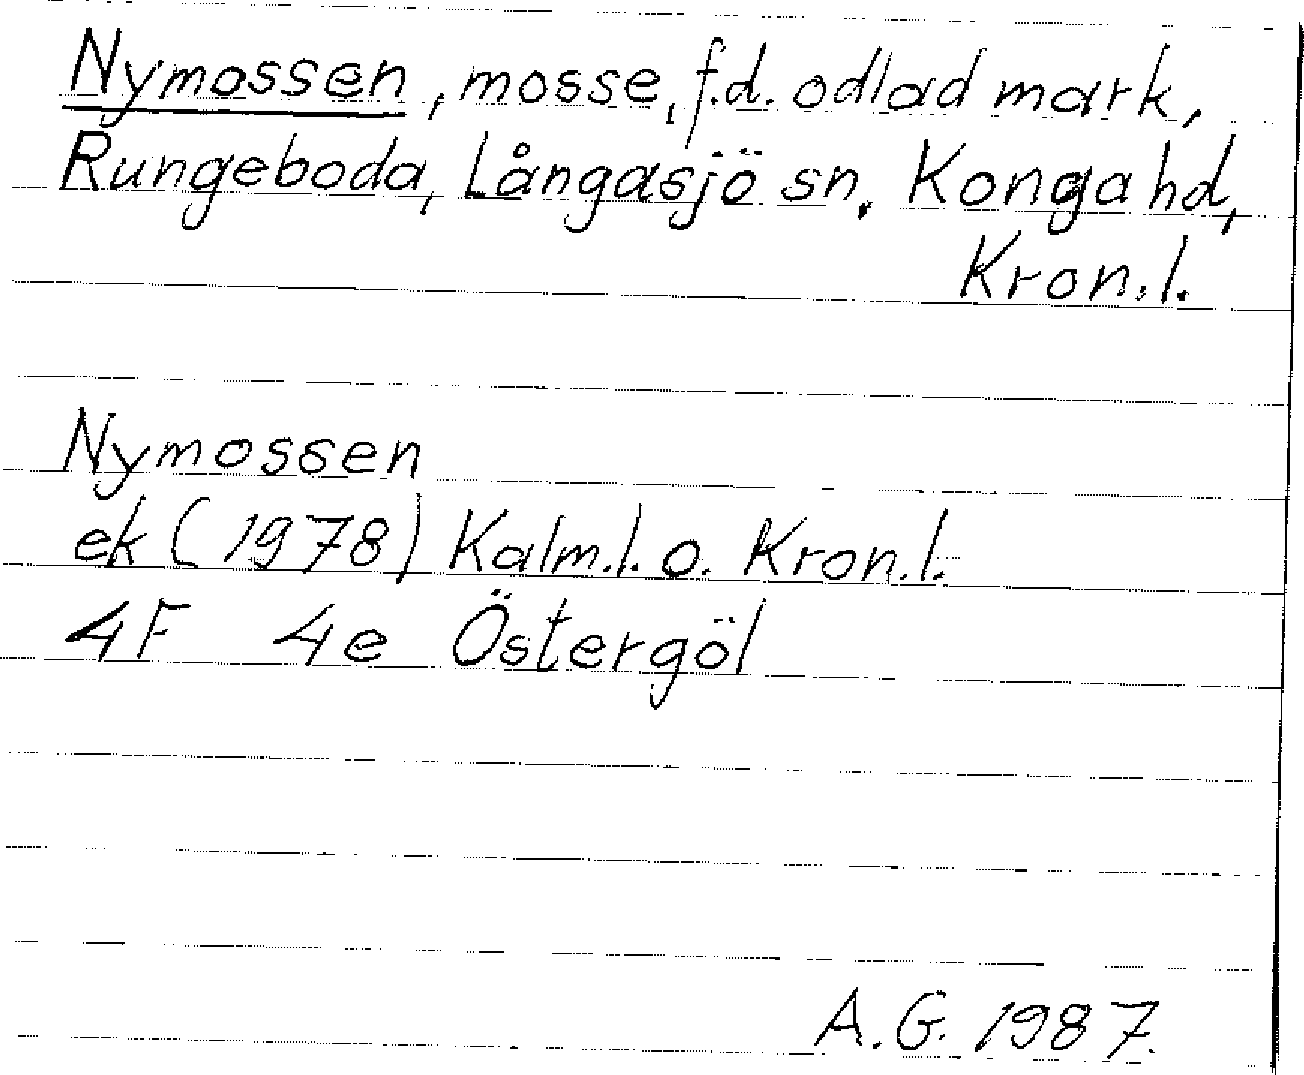 Nymossen, mosse, f.d. odlad mark,
Rungeboda, Långasjö sn, Konga hd,
Kron.l.
Nymossen
ek (1978) Kalm.l. o. Kron.l.
4F 4e Östergöl
A.G. 1987.